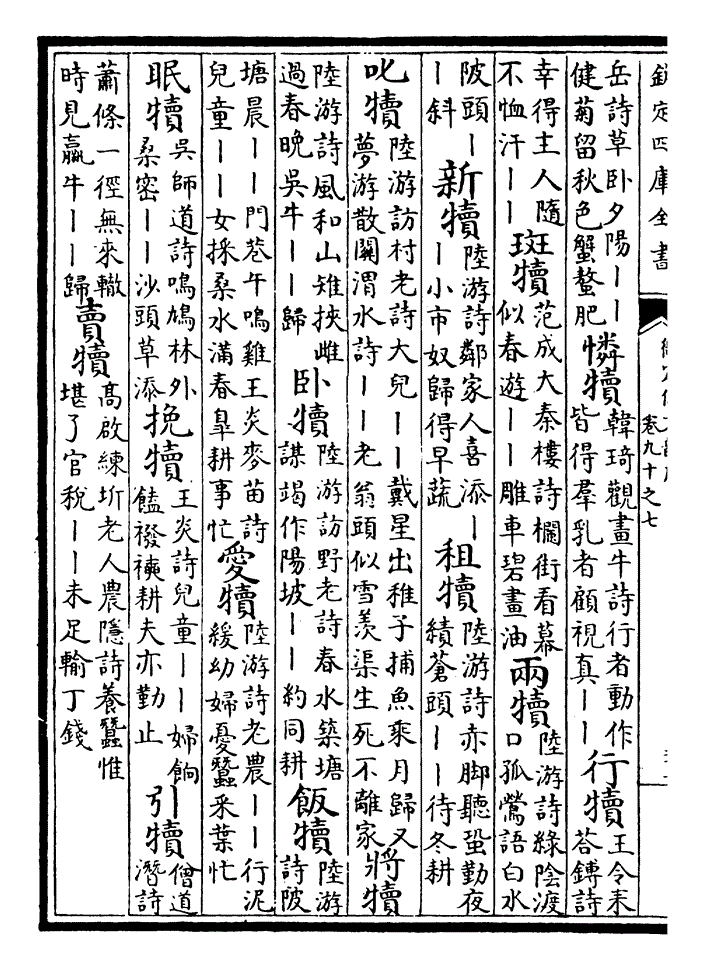 欽定四庫全書
卷九十之七
岳詩草卧夕陽｜｜健菊留秋色蟹螯肥憐犢韓琦觀畫牛詩行者動作皆得羣乳者顧視真｜｜行犢王令耒荅鏄詩
幸得主人隨不恤汗｜｜斑犢范成大秦樓詩欄街看幕似春遊｜｜雕車碧畫油兩犢陸游詩綠陰渡口孤鶯語白水
陂頭｜｜斜新犢陸游詩鄰家人喜添｜｜小市奴歸得早蔬租犢陸游詩赤脚聽蛩勤夜績蒼頭｜｜待冬耕
叱犢陸游訪村老詩大兒｜｜戴星出稚子捕魚乘月歸又夢游散關渭水詩｜｜老翁頭似雪羨渠生死不離家將犢
陸游詩風和山雉挾雌過春晚吳牛｜｜歸卧犢陸游訪野老詩春水築塘謀竭作陽坡｜｜約同耕飯犢陸游詩陂
塘晨｜｜門巷午鳴雞王炎麥苗詩兒童｜｜女採桑水滿春臯耕事忙愛犢陸游詩老農｜｜行泥緩幼婦憂蠶采葉忙
眠犢吳師道詩鳴鳩林外桑密｜｜沙頭草添挽犢王炎詩兒童｜｜婦餉饁襏襫耕夫亦勤止引犢僧道潛詩
蕭條一徑無來轍時見羸牛｜｜歸賣犢高啟練圻老人農隱詩養蠶惟堪了官稅｜｜未足輸丁錢